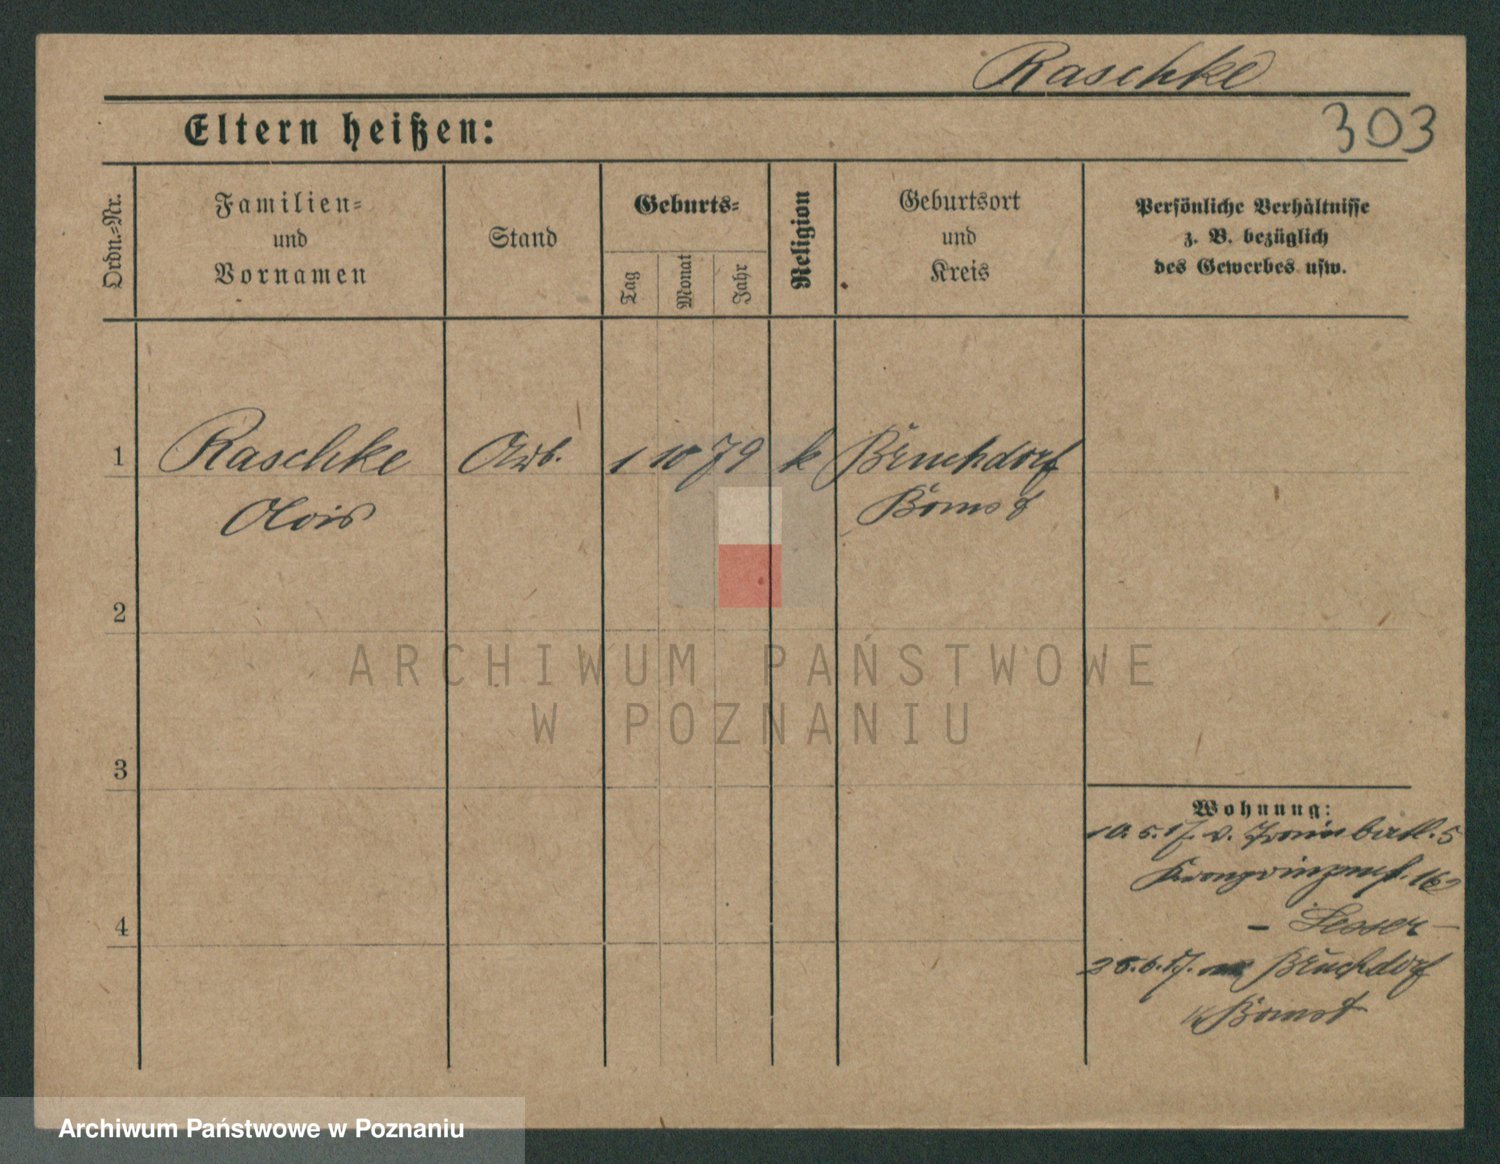 Raschke
303
Eltern heißen:
Ordn.=Nr.
Familien=
und
Vornamen
Stand
Geburts=
Tag
Monat
Jahr
Religion
Geburtsort
und
Kreis
Persönliche Verhältnisse
z. B. bezüglich
des Gewerbes usw.
1
Raschke
Arb.
1
10
79
k
Bruchdorf
Alois
Bomst
2
ARCHIWUM PAŃSTWOWE
W POZNANIU
3
Wohnung:
10.5.17. v.
Kronprinzenst. 16
- Lesser -
4
25.6.17. Bruchdorf
Bomst
Archiwum Państwowe w Poznaniu